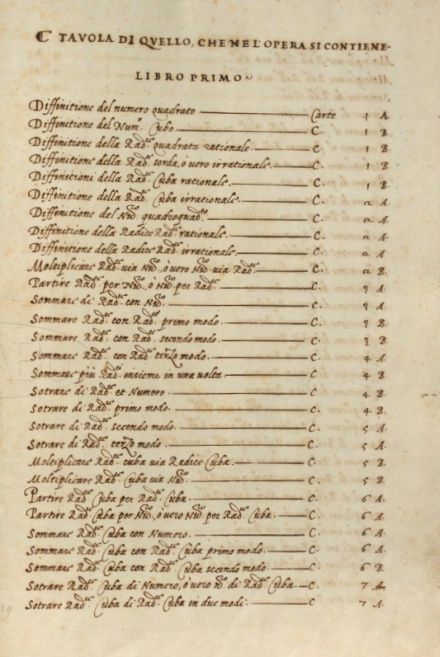 C TAVOLA DI QVELLO, CHE NE L'OPERA SI CONTIENE.
LIBRO PRIMO
Diffinitione del numero quadrato Carte 1 A.
Diffinitione del Num.º Cubo C. 1 B.
Diffinitione della Rad.ce quadrata rationale. C. 1 B.
Diffinitione della Rad.ce sorda, ò vero irrationale. C. 1 B.
Diffinitioni della Rad.ce Cuba rationale. C. 1 B.
Diffinitione della Rad.ce Cuba irrationale. C. 2 A.
Diffinitione del N.ro quadroquad.to C. 2 A.
Diffinitione della Radice Rad.ce rationale. C. 2 A.
Diffinitione della Radice Rad.ce irrationale. C. 2 A.
Moltiplicare Rad.ce via N.ro ò vero N.ro via Rad.ce C. 2 B.
Partire Rad.ce per N.ro, ò N.ro per Rad.ce C. 3 A.
Sommare di Rad.ce con N.ro C. 3 A.
Sommare Rad.ce con Rad.ce primo modo. C. 3 B.
Sommare Rad.ce con Rad.ce secondo modo. C. 3 B.
Sommare Rad.ce con Rad.ce terzo modo. C. 4 A.
Sommare più Rad.ce insieme in una volta C. 4 B.
Sotrare di Rad.ce et Numero. C. 4 B.
Sotrare di Rad.ce primo modo. C. 4 B.
Sotrare di Rad.ce secondo modo. C. 5 A.
Sotrare di Rad.ce terzo modo. C. 5 A.
Moltiplicare Rad.ce cuba via Radice Cuba. C. 5 B.
Moltiplicare Rad.ce Cuba via N.ro C. 5 B.
Partire Rad.ce Cuba per Rad.ce Cuba. C. 6 A.
Partire Rad.ce Cuba per N.ro, ò vero N.ro per Rad.ce Cuba. C. 6 A.
Sommare Rad.ce Cuba con Numero. C. 6 A.
Sommare Rad.ce Cuba con Rad.ce Cuba primo modo. C. 6 A.
Sommare Rad.ce Cuba con Rad.ce Cuba secondo modo. C. 6 B.
Sotrare Rad.ce Cuba di Numero, ò vero N.ro di Rad.ce Cuba. C. 7 A.
Sotrare Rad.ce Cuba di Rad.ce Cuba in due modi. C 7 A.